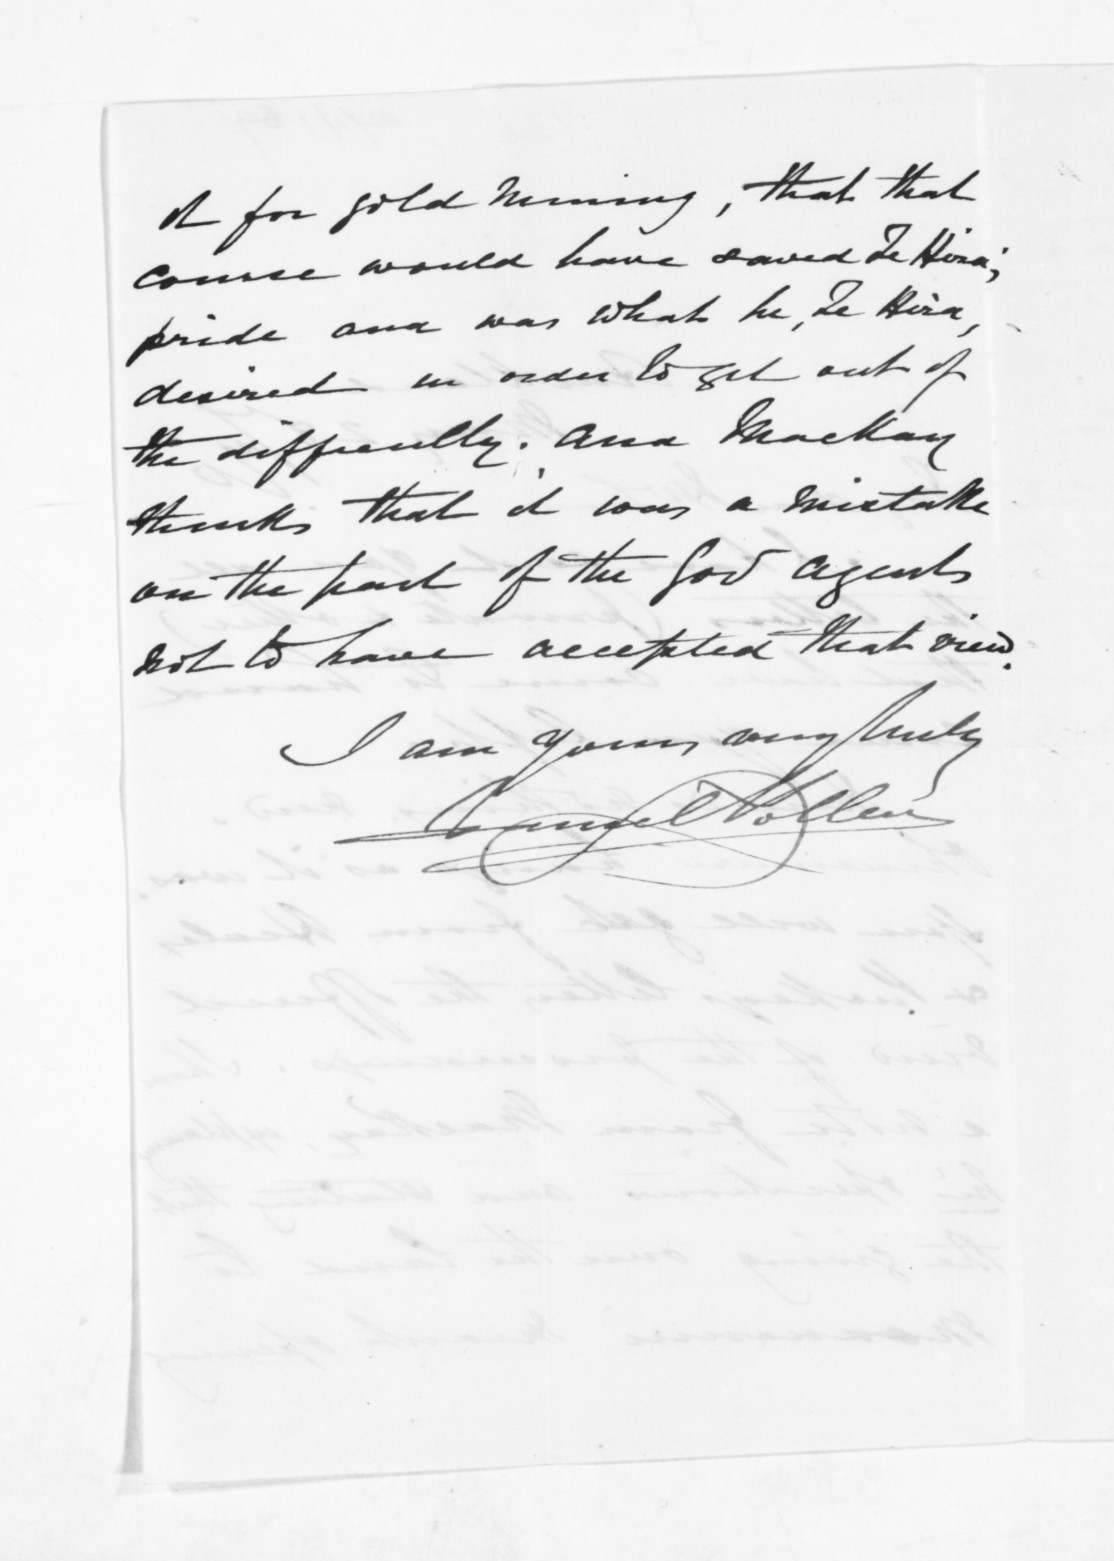 it for gold mining, that that
course would have saved Te Hira's
pride and was what he, Te Hira,
desired in order to get out of
the difficulty. And Mackay
thinks that it was a mistake
on the part of the Gov agents
not to have accepted that view.
I am Yours very truly
Daniel Pollen